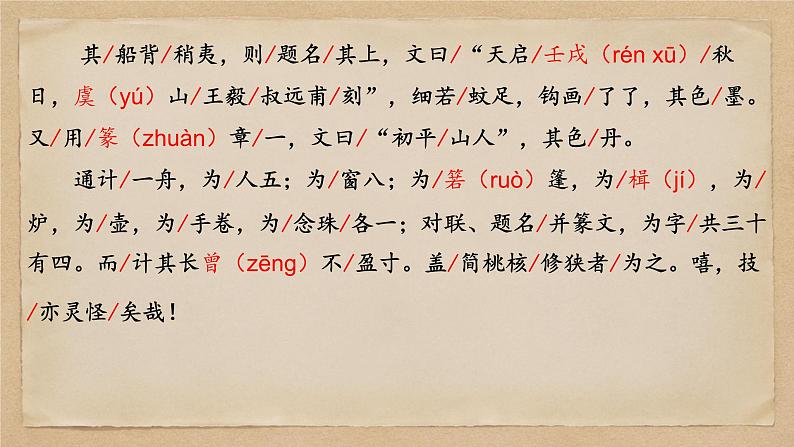 其/船背/稍夷，则/题名/其上，文曰/“天启/壬戌（rén xū）/秋
日，虞（yú）山/王毅/叔远甫/刻”，细若/蚊足，钩画/了了，其色/墨。
又/用/篆（zhuàn）章/一，文曰/“初平/山人”，其色/丹。
通计/一舟，为/人五；为/窗八；为/箬（ruò）篷，为/楫（jí），为/
炉，为/壶，为/手卷，为/念珠/各一；对联、题名/并篆文，为字/共三十
有四。而/计其长曾（zēng）不/盈寸。盖/简桃核/修狭者/为之。嘻，技
/亦灵怪/矣哉！